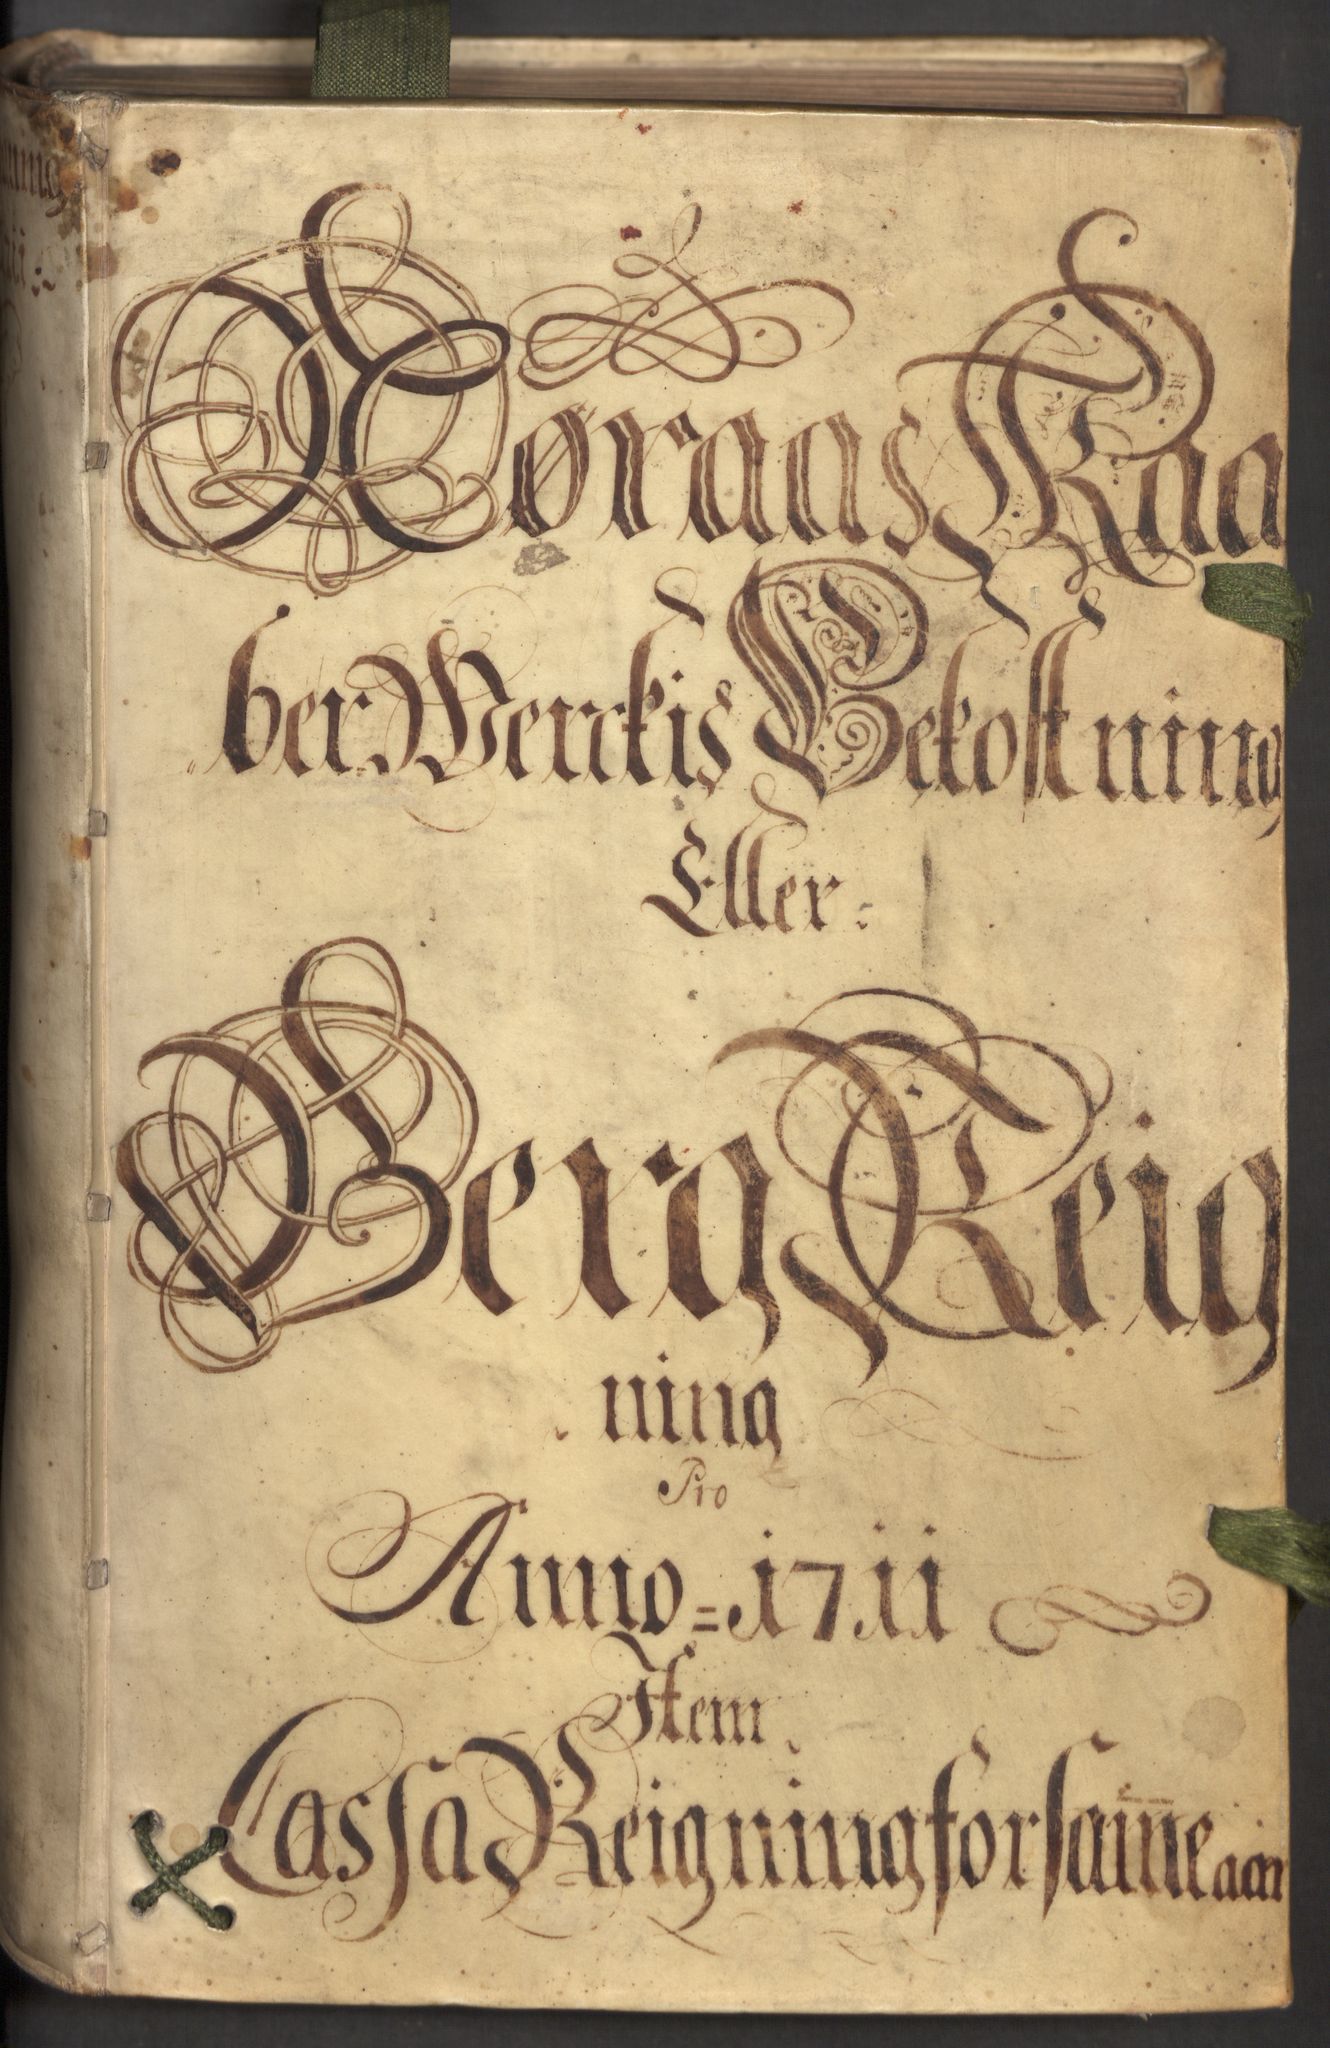 Røraas Kaa
ber Werckis Bekostning
Eller
Berg Reig
ning
Pro
Anno = 1711
Item
Cassa Reigning for sam̅e aar